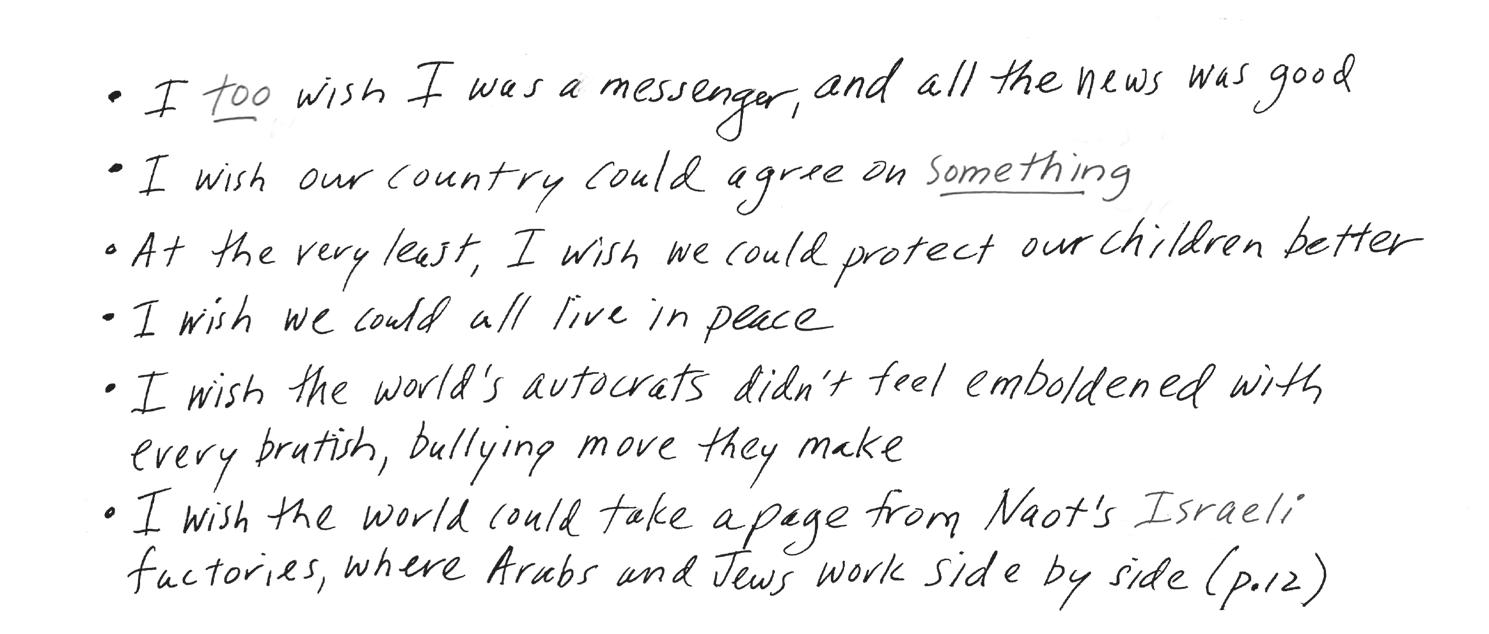 • I too wish I was a messenger, and all the news was good
• I wish our country could agree on something
• At the very least, I wish we could protect our children better
• I wish we could all live in peace
• I wish the world's autocrats didn't feel emboldened with
every brutish, bullying move they make
• I wish the world could take a page from Naot's Israeli
factories, where Arabs and Jews work side by side (p.12)